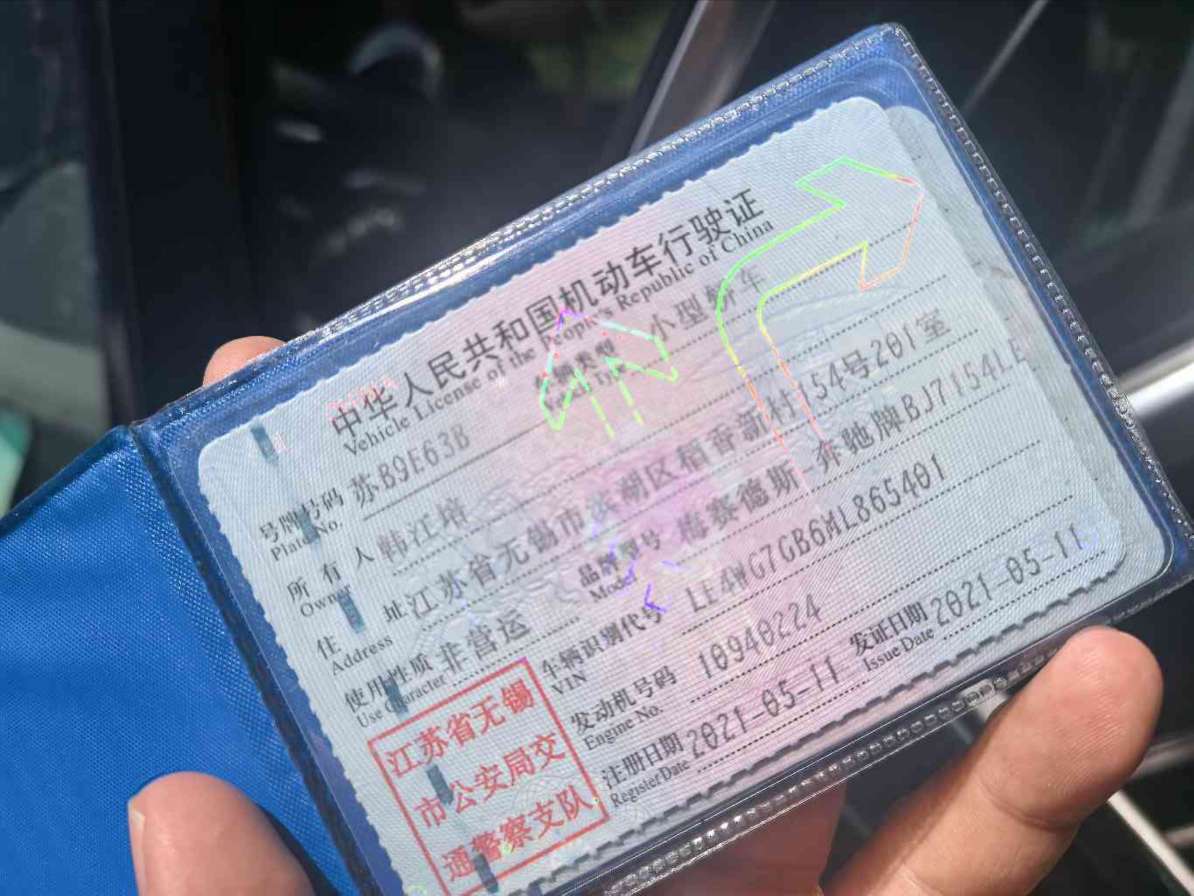 中华人民共和国机动车行驶证
Vehicle License of the People's Republic of China
号牌号码 苏B9E63B 车辆类型 小型轿车
Plate No.
所有人 韩江培
Owner
住址 江苏省无锡市滨湖区稻香新村154号201室
Address
使用性质 非营运 品牌型号 梅赛德斯-奔驰牌BJ7154L
Use Character Model
车辆识别代号 LE4WG7GB6ML865401
VIN
发动机号码 10940224
Engine No.
注册日期 2021-05-11 发证日期 2021-05-11
Register Date Issue Date
江苏省无锡
市公安局交
通警察支队